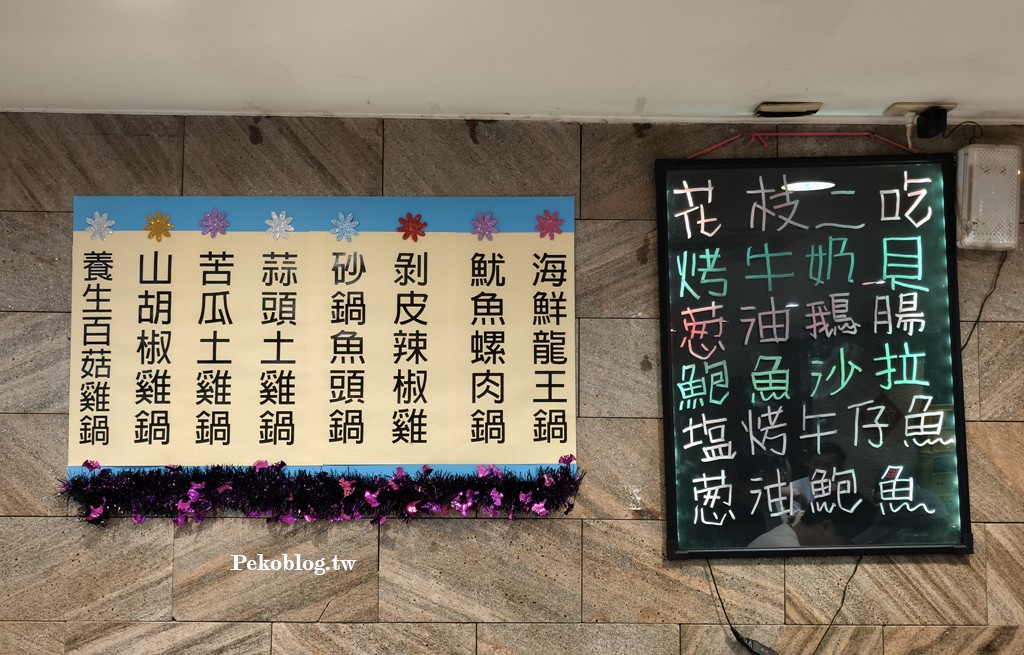 海鮮龍王鍋
魷魚螺肉鍋
剝皮辣椒雞
砂鍋魚頭鍋
蒜頭土雞鍋
苦瓜土雞鍋
山胡椒雞鍋
養生百菇雞鍋
花枝二吃
烤牛奶貝
葱油鵝腸
鮑魚沙拉
塩烤午仔魚
葱油鮑魚
Pekoblog.tw